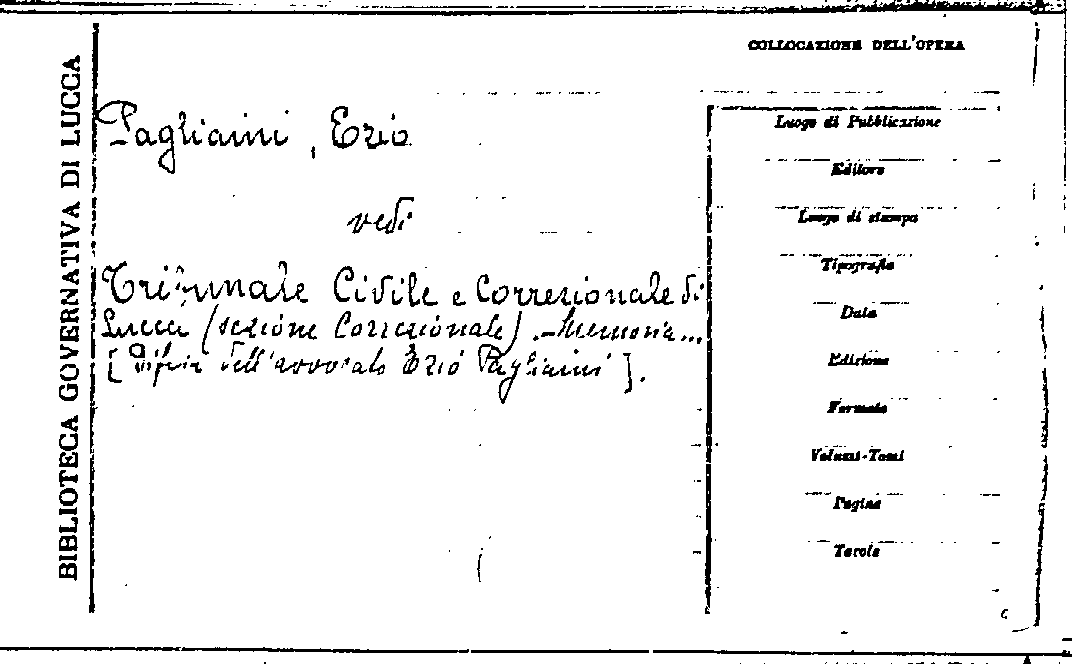 BIBLIOTECA GOVERNATIVA DI LUCCA
Pagliaini, Ezio
vedi
Tribunale Civile e Correzionale di
Lucca (sezione Correzionale). Memoria...
[Difesa dell'avvocato Ezio Pagliaini].
COLLOCAZIONE DELL'OPERA
Luogo di Pubblicazione
Editore
Luogo di stampa
Tipografia
Data
Edizione
Formato
Volumi-Tomi
Pagine
Tavole